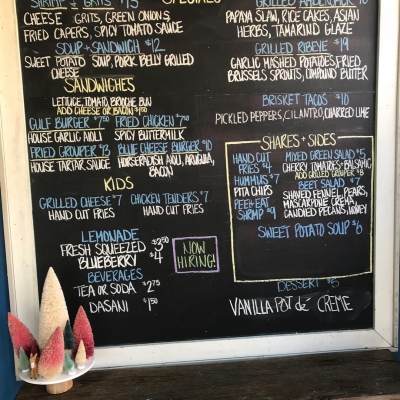 SHRIMP & GRITS $15
CHEESE GRITS, GREEN ONIONS,
FRIED CAPERS, SPICY TOMATO SAUCE
SOUP + SANDWICH $12
SWEET POTATO SOUP, PORK BELLY GRILLED
CHEESE
SANDWICHES
LETTUCE, TOMATO, BRIOCHE BUN
ADD CHEESE OR BACON
GULF BURGER $7.50 FRIED CHICKEN
HOUSE GARLIC AIOLI SPICY BUTTERMILK
FRIED GROUPER $13 BLUE CHEESE BURGER $10
HOUSE TARTAR SAUCE HORSERADISH AIOLI, ARUGULA,
BACON
KIDS
GRILLED CHEESE $7 CHICKEN TENDERS $7
HAND CUT FRIES HAND CUT FRIES
LEMONADE
FRESH SQUEEZED $3.50
BLUEBERRY $4
BEVERAGES
TEA OR SODA $2.75
DASANI $1.50
NOW
HIRING!
SPECIALS
GRILLED AMBERJACK
PAPAYA SLAW, RICE CAKES, ASIAN
HERBS, TAMARIND GLAZE
GRILLED RIBEYE $19
GARLIC MASHED POTATOES, FRIED
BRUSSELS SPROUTS, COMPOUND BUTTER
BRISKET TACOS $10
PICKLED PEPPERS, CILANTRO, CHARRED LIME
SHARES + SIDES
HAND CUT
FRIES
HUMMUS $7
PITA CHIPS
PEEL + EAT
SHRIMP $9
MIXED GREEN SALAD $5
CHERRY TOMATOES, BALSAMIC
ADD GRILLED GROUPER $8
BEET SALAD $7
SHAVED FENNEL, PEARS,
MASCARPONE CREMA,
CANDIED PECANS, HONEY
SWEET POTATO SOUP $6
DESSERT $5
VANILLA POT de CREME